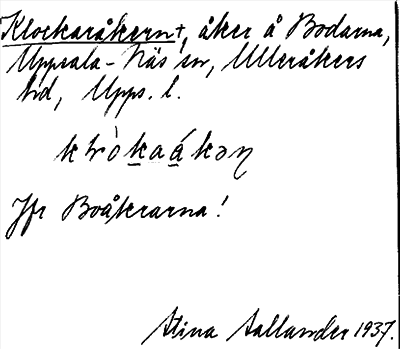 Klockaråkern+, åker å Bodarna,
Uppsala-Näs sn, Ulleråkers
hd, Upps. l.
Jfr Boåkrarna!
Stina Sallander 1937.